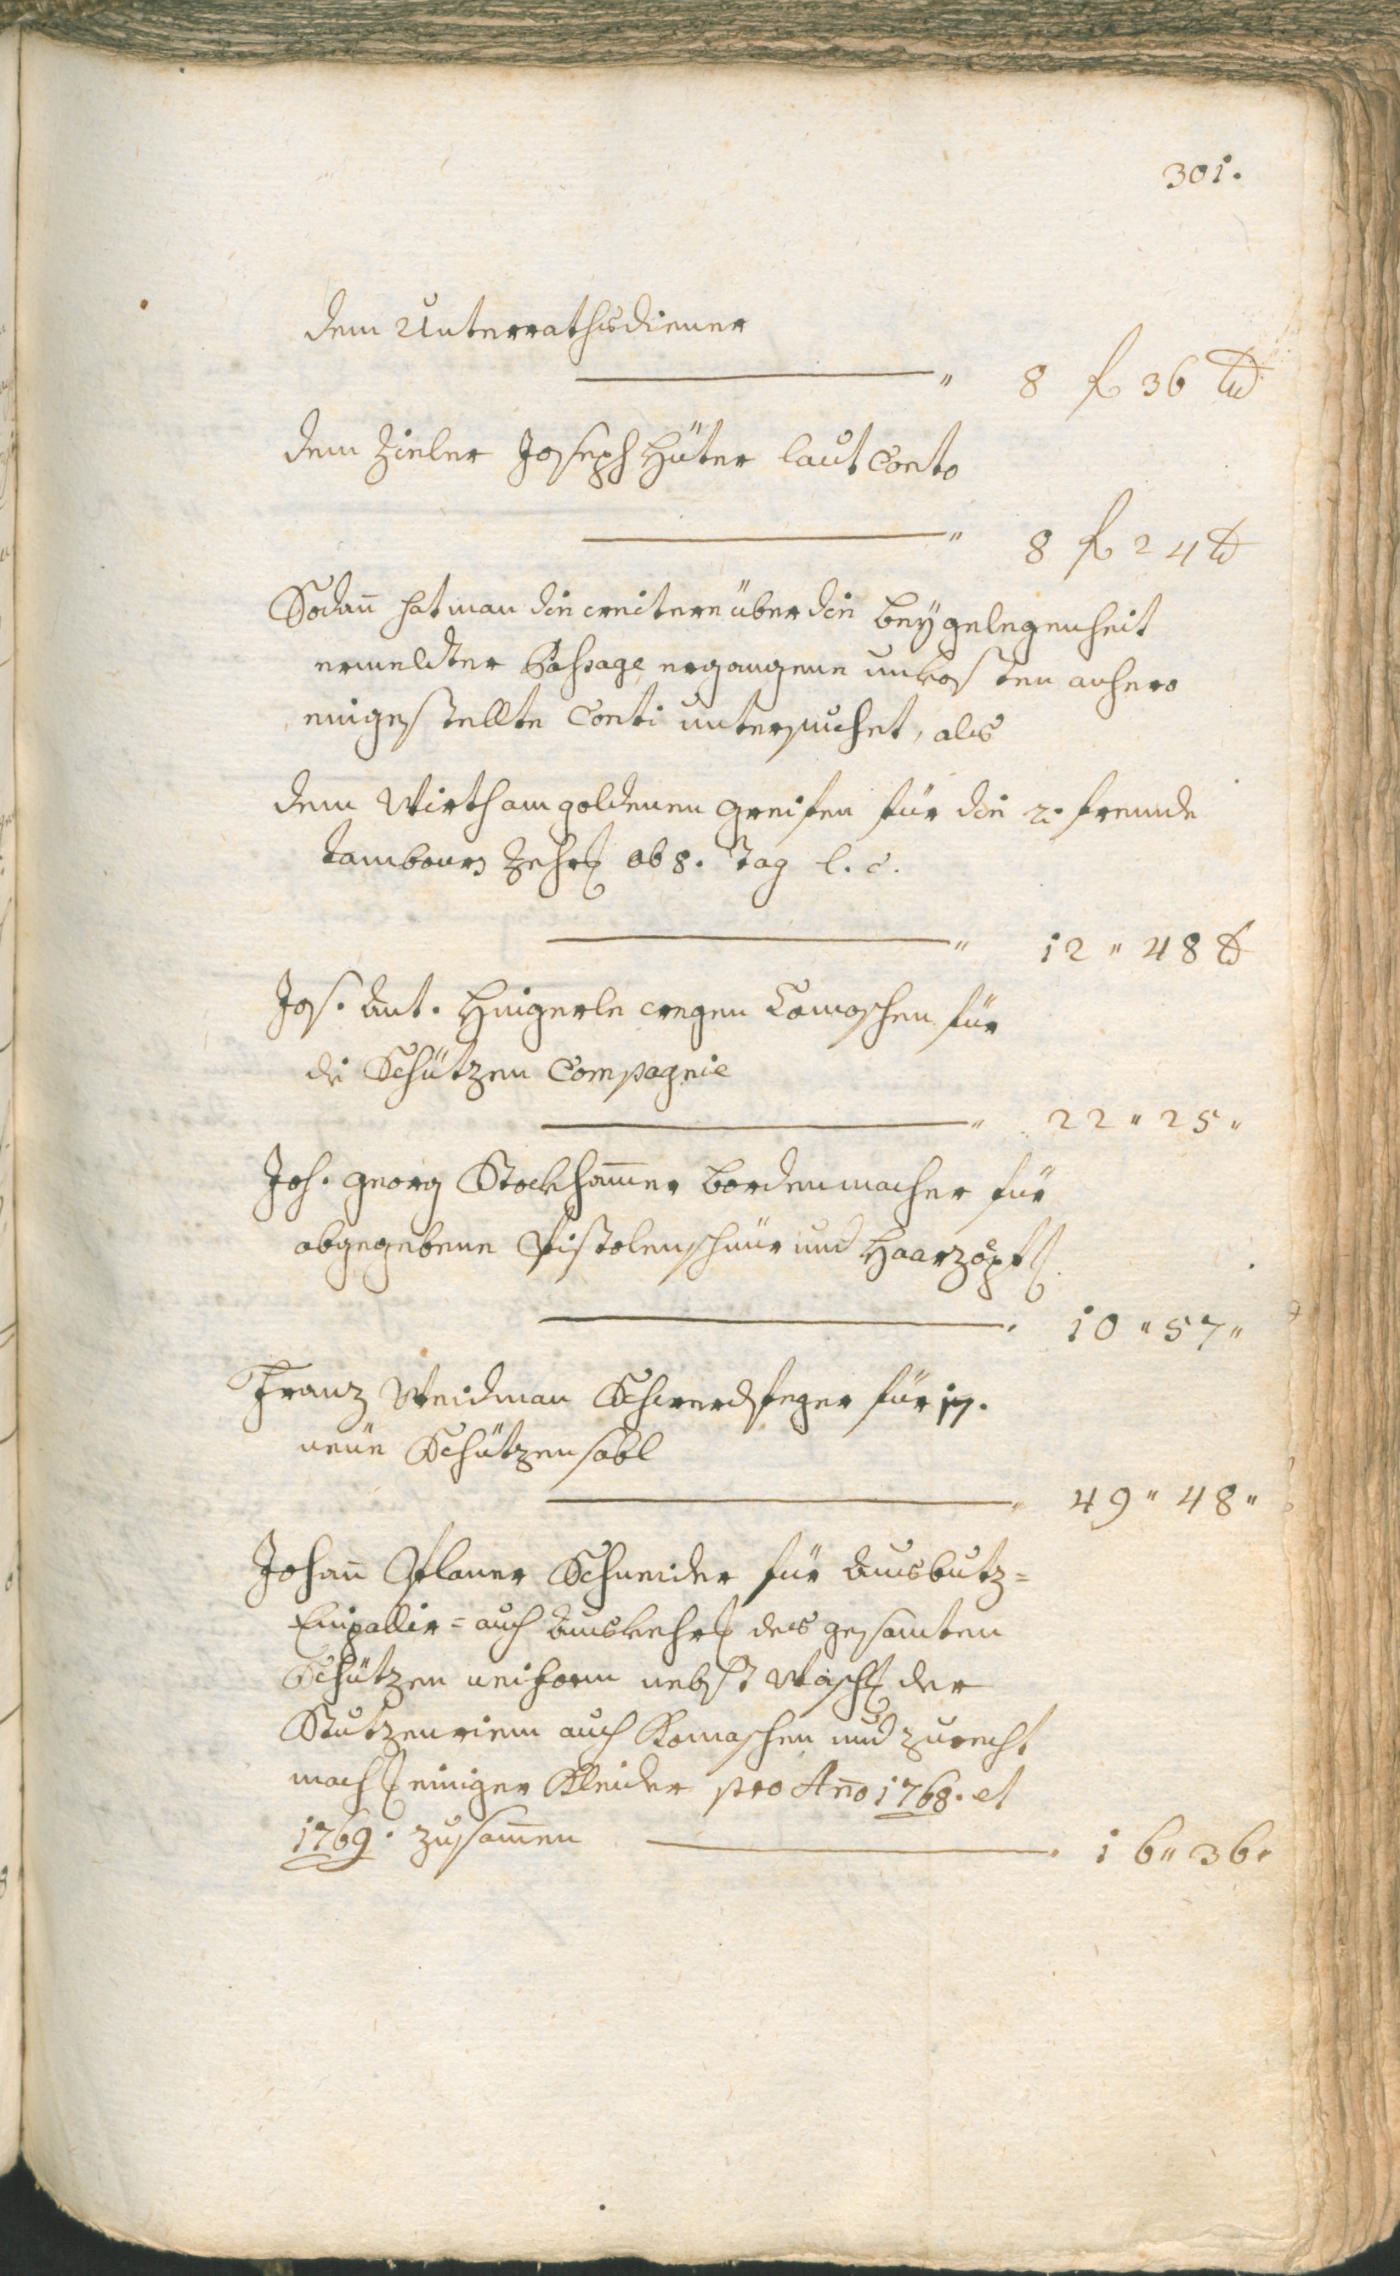 301.
dem Unterrathsdiener
8 f 36 xr
dem Zieler Joseph Hüter laut Conto
8 f 24 xr
Sodan̄ hat man die weitere über die beÿ gelegenheit
ermeldter Passage ergangene unkosten anhero
eingestellte Conti untersuchet, als
dem Wirth am goldenen Greifen für die 2. fremde
tambours Zehrg ob 8. Tag l. c.
12 " 48 xr
Jos. Ant. Hingerle wegen Camaschen für
die Schützen Compagnie
22 " 25 "
Joh. Georg Stockham̄er bordenmacher für
abgegebene Pistolenschnür und Haarzöpf
10 " 57 "
Franz Weidman Schwerdfeger für 17.
neüe Schützensäbl
49 " 48 "
Johan̄ Planer Schneider für Ausbutz=
Einballir= auch Auskehrg des gesamten
Schützen uniform nebst Waschg der
Stutzenriem auch Kamaschen und zurecht
machg einiger Kleider pro Año 1768. et
1769. zusam̄en
16 " 36 "